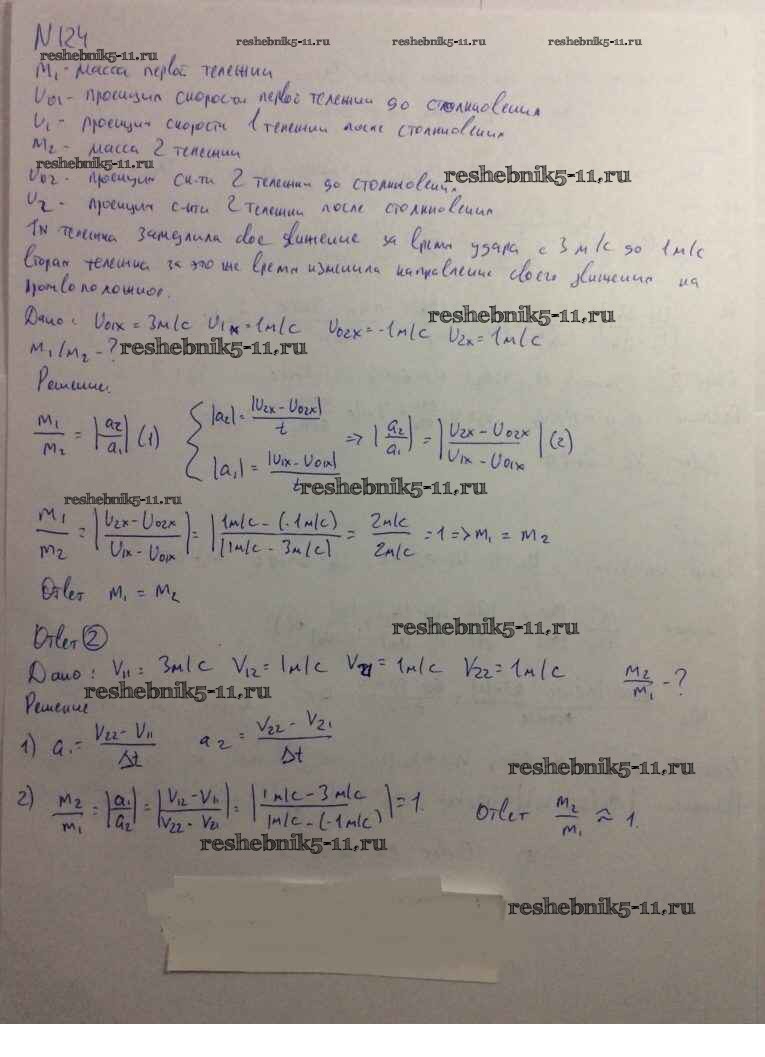 N124
reshebnik5-11.ru reshebnik5-11.ru reshebnik5-11.ru
reshebnik5-11.ru
M₁ - масса первой тележки
U₀₁ - проекция скорости первой тележки до столкновения
U₁ - проекция скорости 1 тележки после столкновения
M₂ - масса 2 тележки
reshebnik5-11.ru
reshebnik5-11,ru
U₀₂ - проекция ск-ти 2 тележки до столкновения
U₂ - проекция с-ти 2 тележки после столкновения
1я тележка замедлила свое движение за время удара с 3 м/с до 1 м/с
вторая тележка за это же время изменила направление своего движения на
противоположное.
reshebnik5-11,ru
Дано: U₀₁ₓ = 3м/с U₁ₓ = 1м/с U₀₂ₓ = -1м/с U₂ₓ = 1м/с
M₁/M₂ - ?
reshebnik5-11,ru
Решение.
M₁/M₂ = |a₂/a₁| (1) { |a₂| = |U₂ₓ - U₀₂ₓ|/t |a₁| = |U₁ₓ - U₀₁ₓ|/t => |a₂/a₁| = |U₂ₓ - U₀₂ₓ/U₁ₓ - U₀₁ₓ| (2)
reshebnik5-11,ru
reshebnik5-11.ru
M₁/M₂ = |U₂ₓ - U₀₂ₓ/U₁ₓ - U₀₁ₓ| = |1м/с - (-1м/с)|/|1м/с - 3м/с| = 2м/с/2м/с = 1 => M₁ = M₂
Ответ M₁ = M₂
reshebnik5-11,ru
Ответ ②
Дано: V₁₁ = 3м/с V₁₂ = 1м/с V₂₁ = 1м/с V₂₂ = 1м/с M₂/M₁ - ?
reshebnik5-11,ru
Решение
1) a₁ = V₂₂ - V₁₁/Δt a₂ = V₂₂ - V₂₁/Δt
reshebnik5-11,ru
2) M₂/M₁ = |a₁/a₂| = |V₁₂ - V₁₁/V₂₂ - V₂₁| = |1м/с - 3м/с/1м/с - (-1м/с)| = 1. Ответ M₂/M₁ ≈ 1.
reshebnik5-11,ru
reshebnik5-11,ru